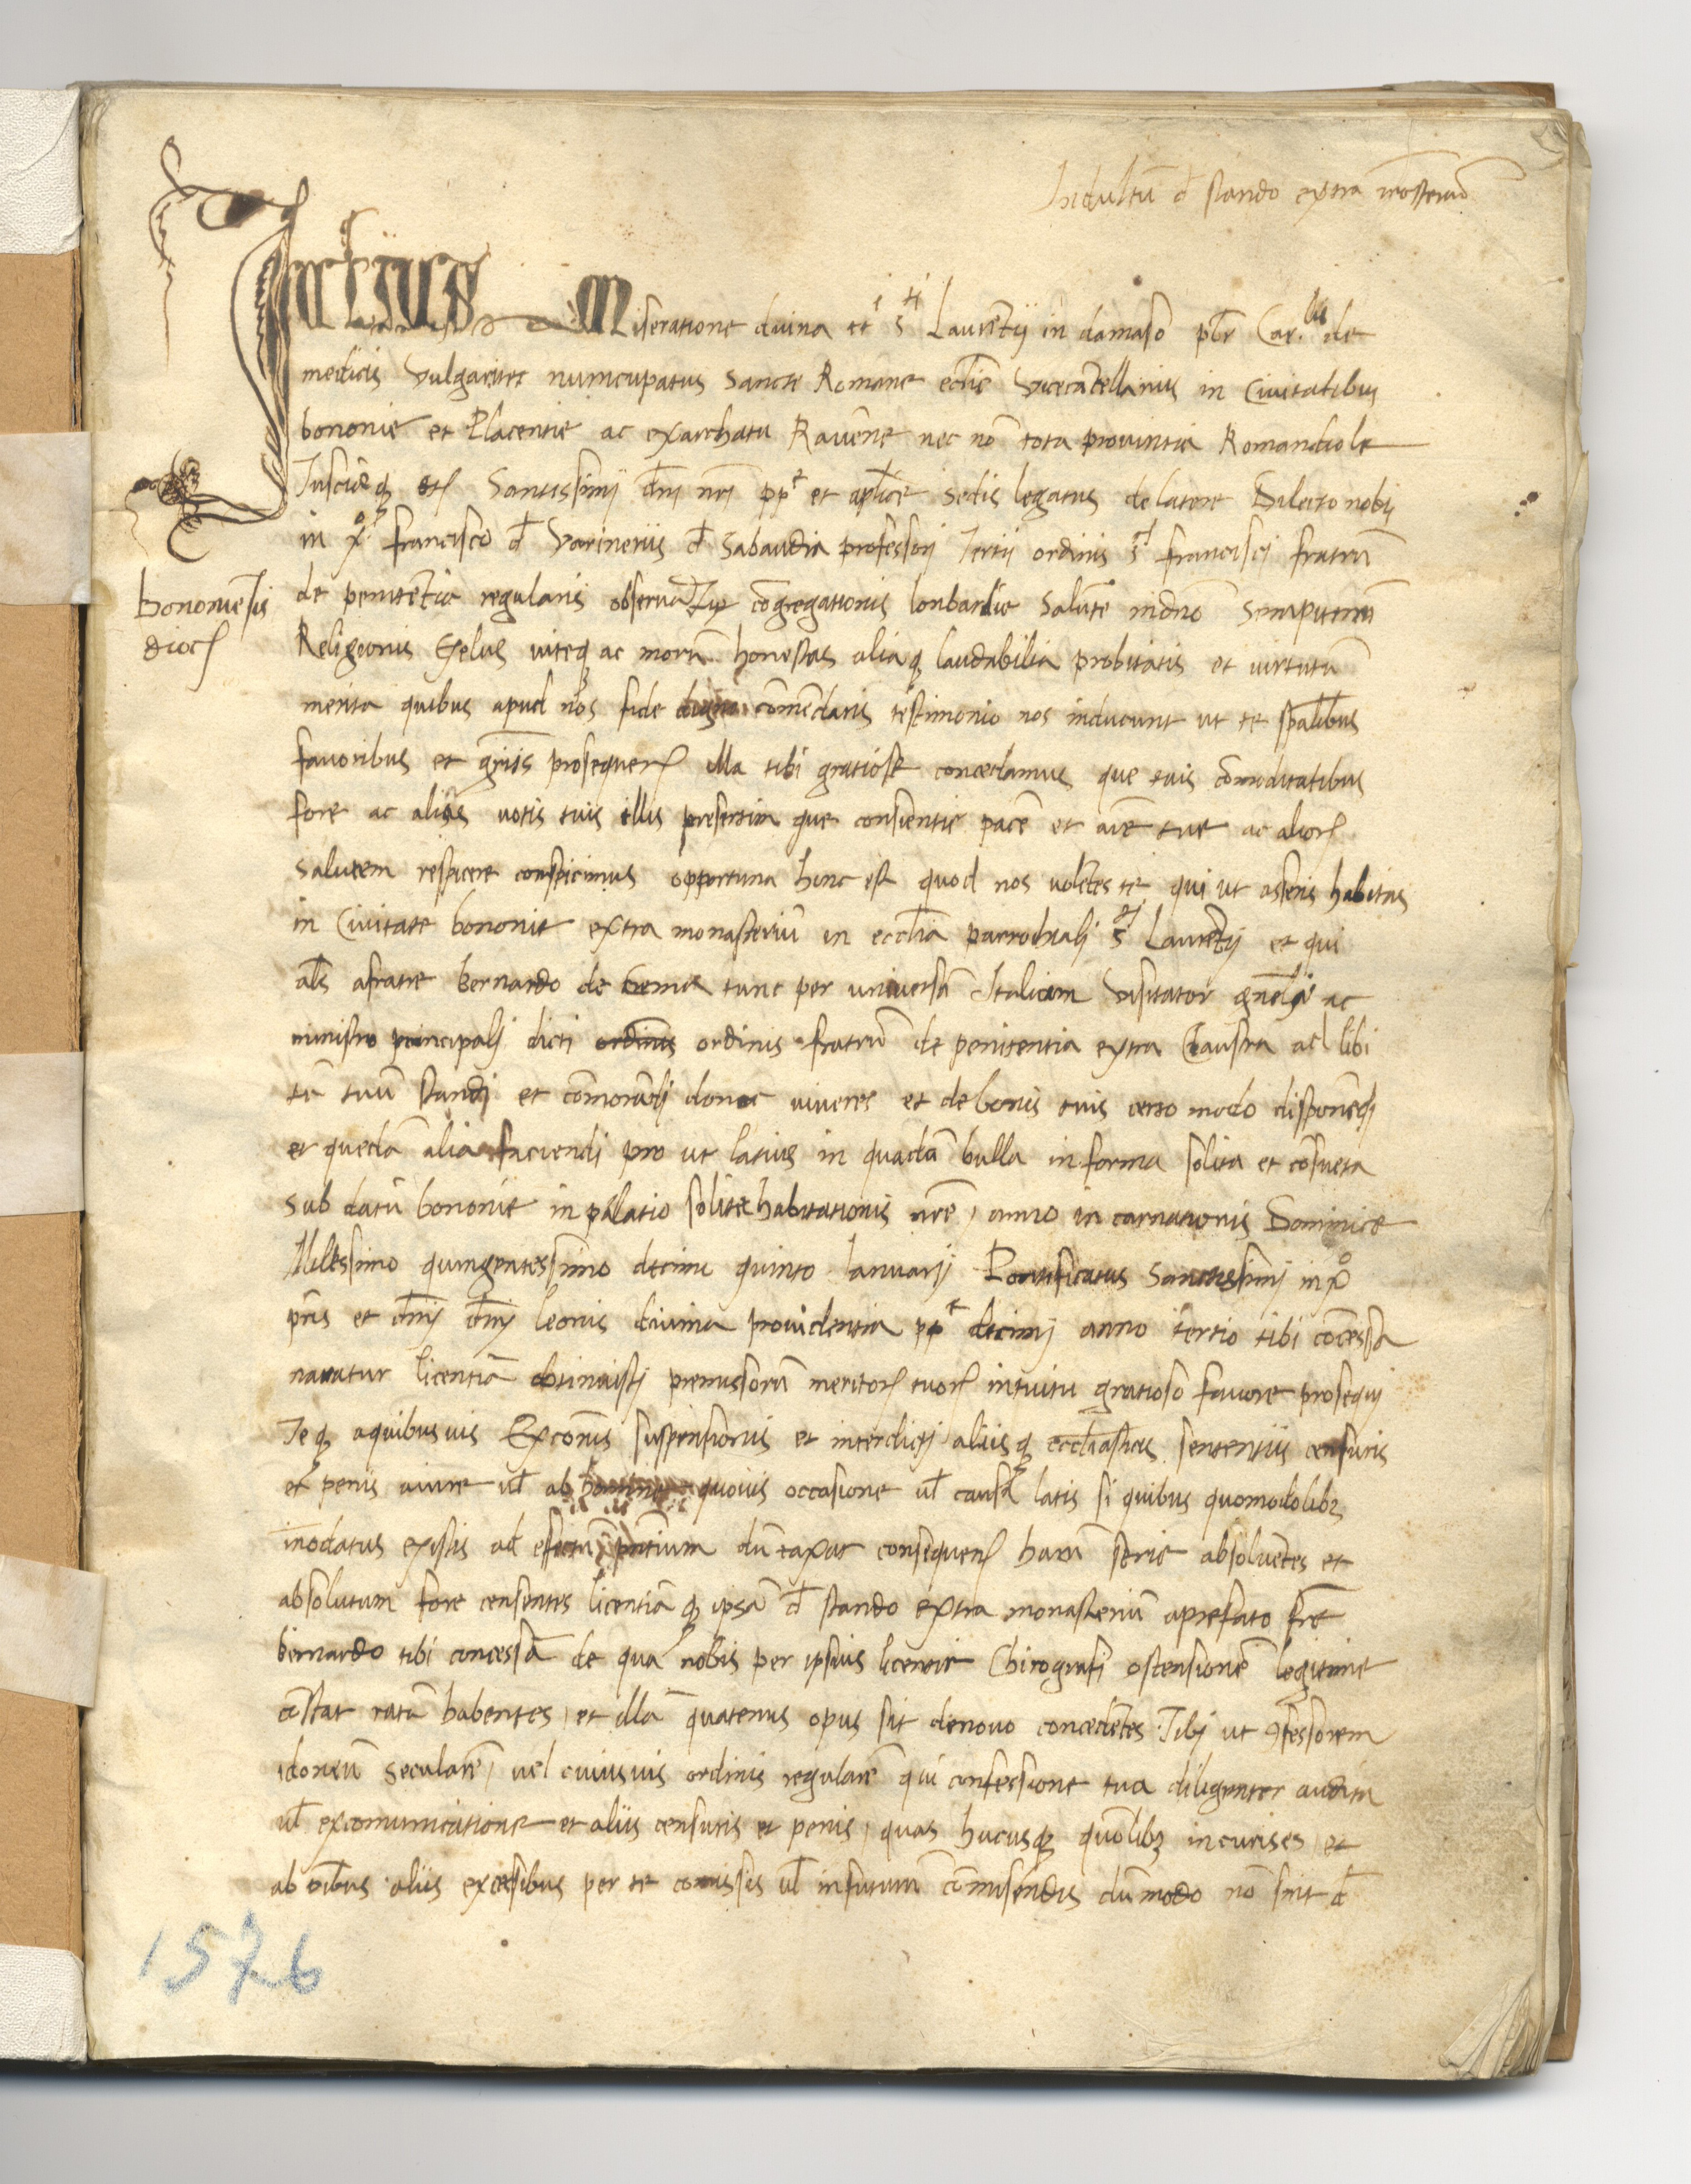 Indultū d̄ stando extra mōsteriū
Julius Miseratione divina etc̄ sti Laurētij in damaso pb̄r Car.lis de
medicis Vulgariter nuncupatus Sancte Romane ecclīe Vicecācellarius in Civitatibus
bononie et Placentie ac exarchatu Ravēne nec nō tota provintia Romandiole
Tuscieq̨ etc Santissimj dn̄j nr̄j ppe et ap̄lice sedis legatus de latere Dilecto nobis
in xo francisco d̄ Varineriis d̄ Sabaudia professorj Tertij ordinis sti franciscj fratrū
bononiēsis
dioc
de penitētia regularis congregationis lonbardie Salutē in dn̄o Sempiternā
Religionis Zelus viteq̨ ac morū honestas aliaq̨ laudabilia probitatis et virtutū
merita quibus apud nos fide digno cōmēdaris testimonio nos inducunt ut te sp̄alibus
favoribus et gr̄iis prosequen illa tibi gratiose concedamus que tuis cōmoditatibus
fore ac alias votis tuis illis presertim que consientie pacē et aīe tue ac alior
salutem respicere conspicimus opportuna hinc est quod nos volētes te qui ut asseris habitas
in Civitate bononie extra monasteriū in ecclīa parrochialj sti Laurētij et qui
al̄s afratre bernardo de tunc per universā Italiam Visitator gn̄ali ac
ministro principalj dicti ordinis ordinis fratrū de penitentia extra Claustra ad libi
tū tuū standj et cōmorādj donec viveres et de bonis tuis certo modo disponēdj
et quedā alia faciendi pro ut latius in quadā bulla in forma solita et cōsueta
sub datū bononie in palatio solite habitationis nr̄e, anno in carnationis Dominice
Milessimo quingentessimo decimo quinto Ianuarij Pontificatus Sanctissimj in xo
pr̄is et dn̄j dn̄j leonis divina providentia ppe decimj anno tertio tibi cōcessa
navatur licentiā obtinuistj premissorū meritor tuor intuitu gratioso favore prosequj
Te q̨ aquibusvis Excōnis suspensionis et interdictj aliisq̨ ecclīasticis sententiis censuris
et penis aiure vl̄ ab homine quovis occasione vl̄ causa latis si quibus quomodolibʒ
inodatus existis ad efectū pn̄tium dū taxat consequen harū serie absolvētes et
absolutum fore censentes licentiā q̨ ipsā d̄ stando extra monasteriū aprefato fr̄e
bernardo tibi concessā de qua nobis per ipsius licentie Chirografi ostensionē legitime
cōstat ratā habentes, et illā quatenus opus sit denovo concedētes. Tibj ut ꝯfessorem
idoneū secularē, vel cuiusvis ordinis regularē qui confessione tua diligenter audita
vl̄ excomunicatione et aliis censuris et penis, quas hucusq̨ quolibʒ incurises et
ab oībus aliis excessibus per te comissis vl̄ in futurū cōmisendis dūmodo nō sint d̄
1576